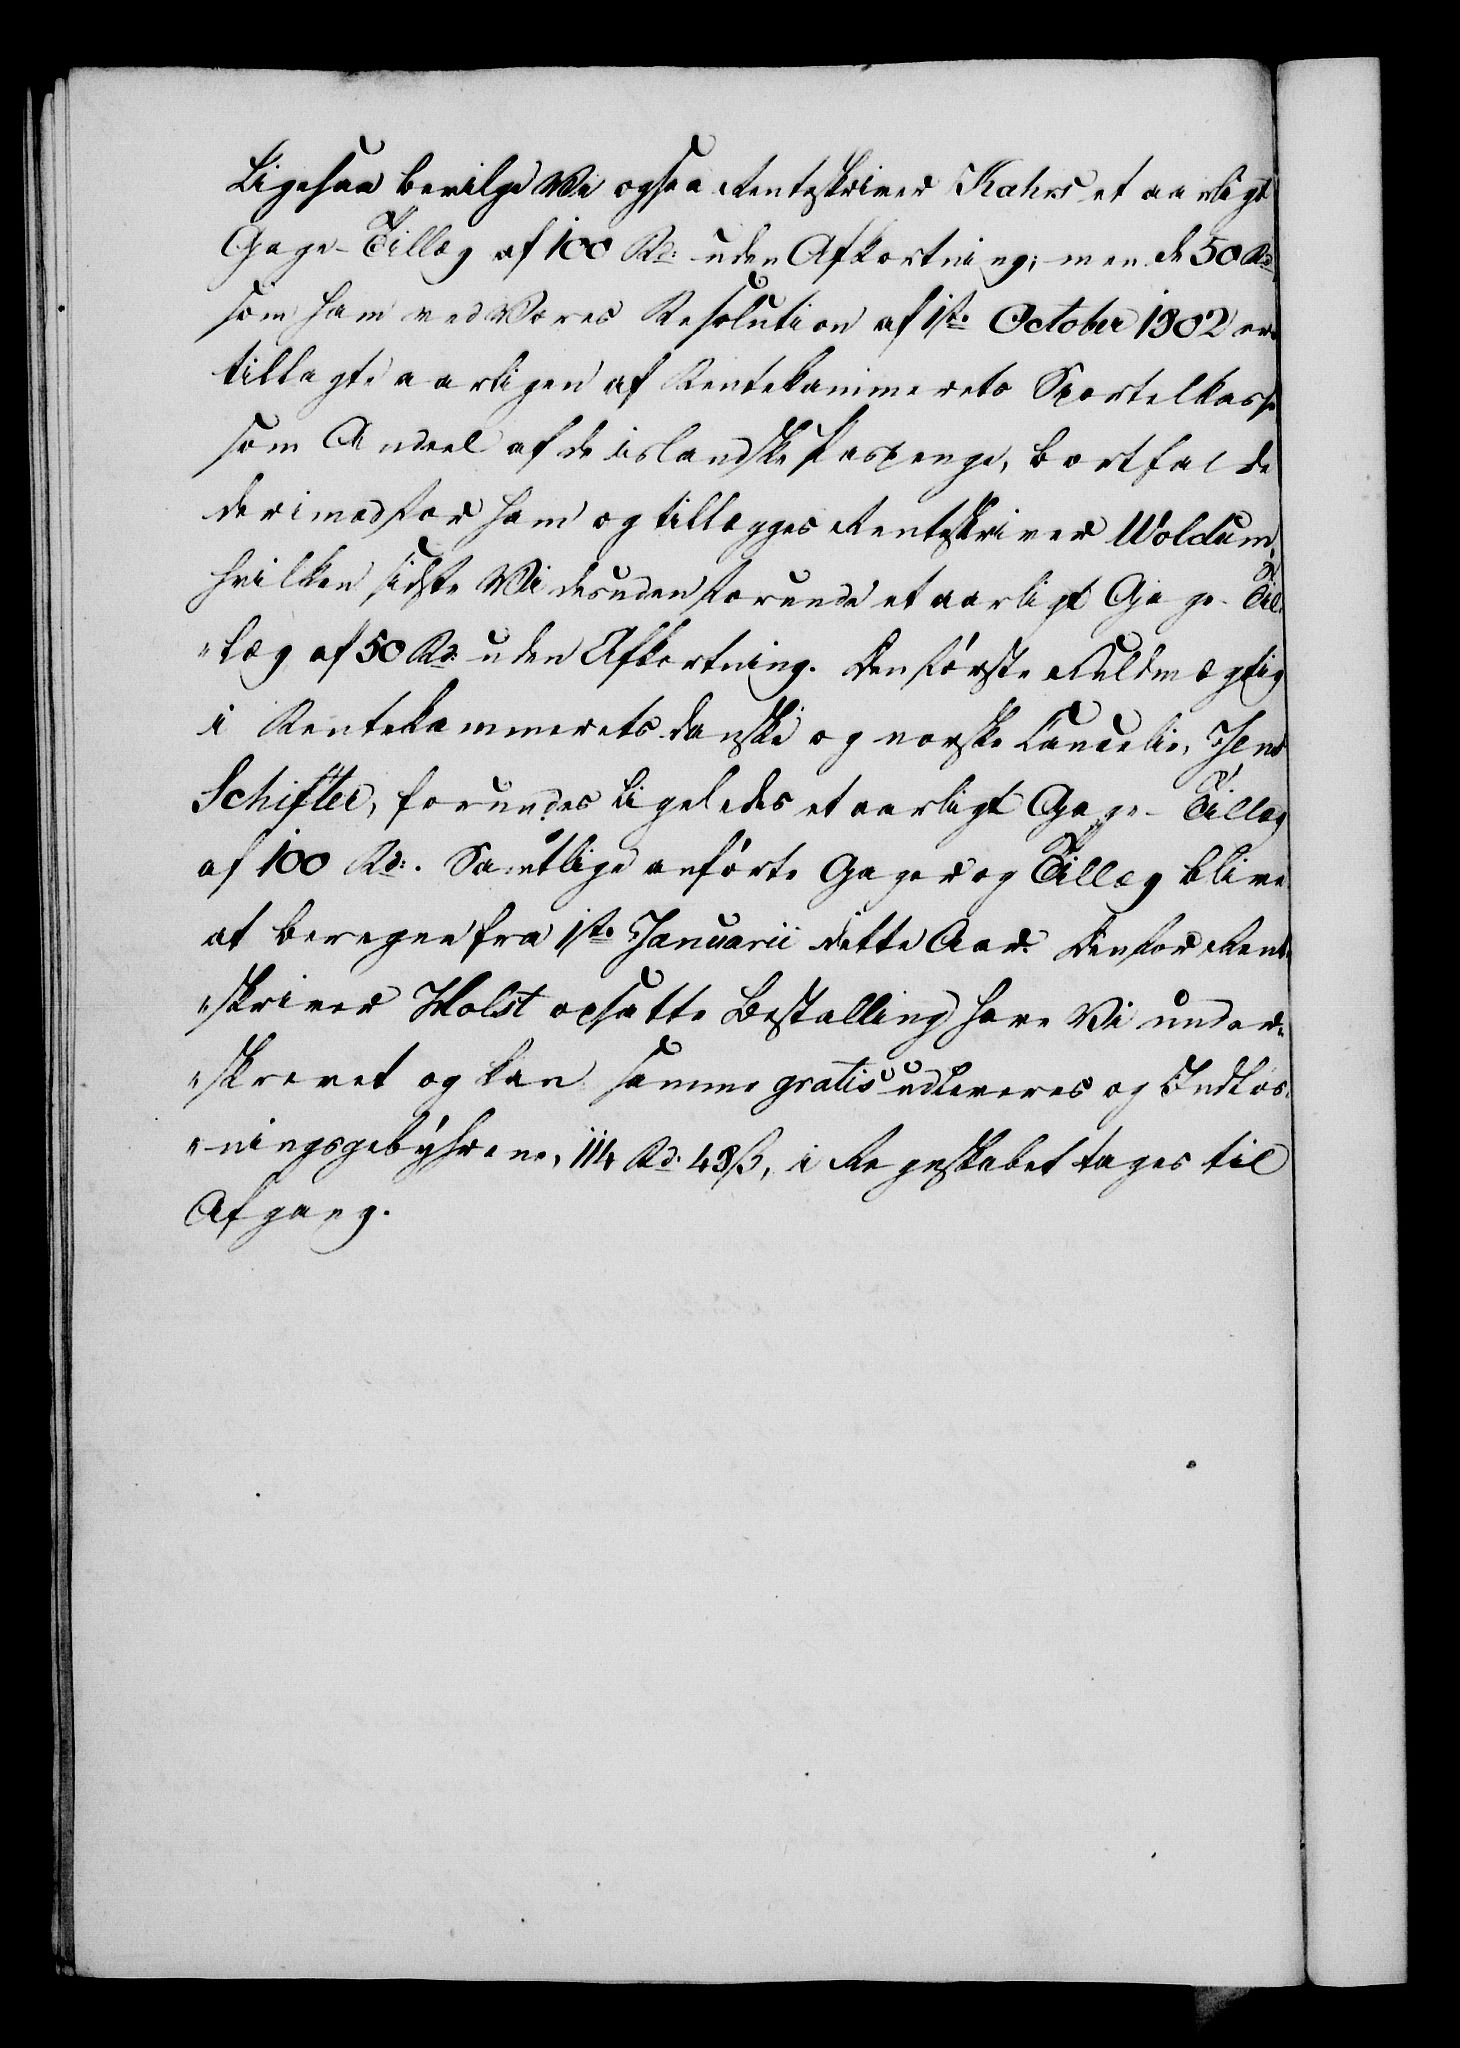 Ligesaa bevilge Vi ogsaa Renteskriver Kahrs et aarligt
Gage-Tillæg af 100 Rd: uden Afkortning; men de 50 Rd
som ham ved Vores Resolution af 1ste October 1802 ere
tillagte aarligen af Rentekammerets Sportelkasse
som Andeel af de islandske Paspenge, bortfalde
derimod for ham og tillægges Renteskriver Woldum,
hvilken sidste Vi desuden forunde et aarligt Gage-Til-
„læg af 50 Rd: uden Afkortning. Den første Fuldmægtig
i Rentekammerets danske og norske Cancelie, Jens
Schifter, forundes ligeledes et aarligt Gage-Tillæg
af 100 Rd:. Samtlige anførte Gager og Tillæg blive
at beregne fra 1ste Januarii dette Aar. Den for Rente-
„skriver Holst opsatte Bestalling have Vi under-
„skrevet og kan samme gratis udleveres og Indløs-
„ningsgebyhrene, 114 Rd. 48 ß, i Regnskabet tages til
Afgang.